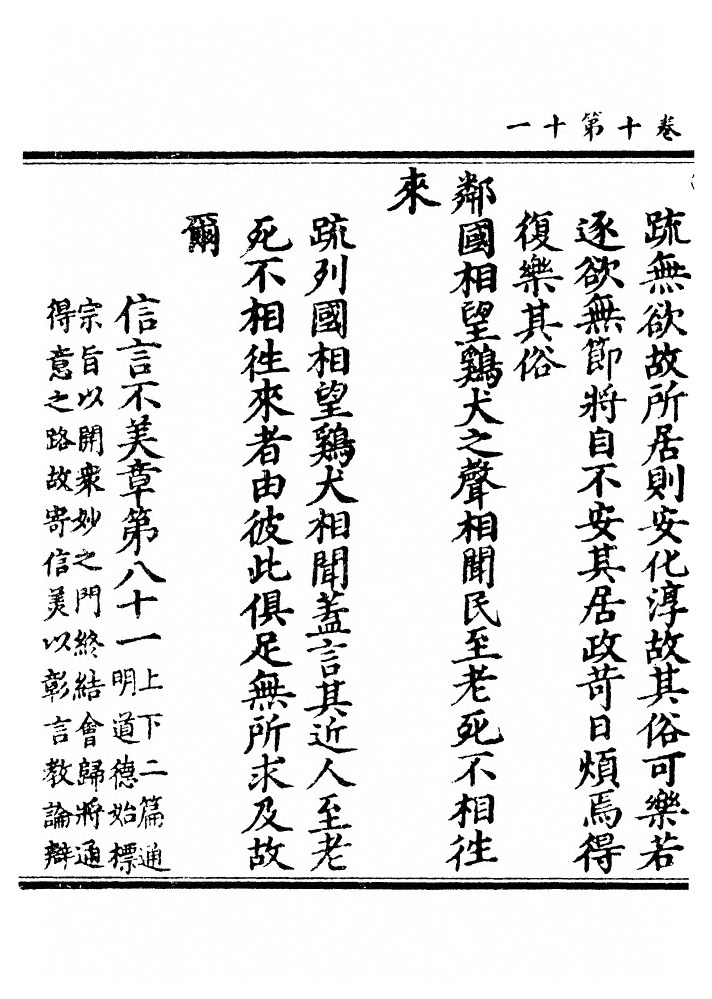 卷十第十一
疏無欲故所居則安化淳故其俗可樂若
逐欲無節將自不安其居政苛日煩焉得
復樂其俗
鄰國相望鷄犬之聲相聞民至老死不相徃
來
疏列國相望鷄犬相聞蓋言其近人至老
死不相徃來者由彼此俱足無所求及故
爾
信言不美章第八十一
上下二篇通
明道德始標
宗旨以開衆妙之門終結會歸將通
得意之路故寄信美以彰言教論辯